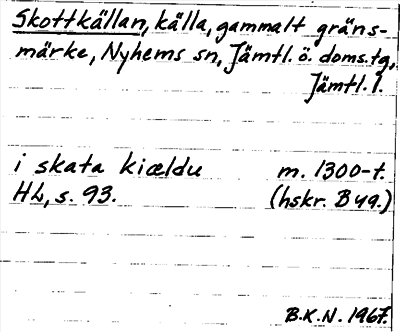 Skottkällan, källa, gammalt gräns-
märke, Nyhems sn, Jämtl. ö. doms.tg,
Jämtl. l.
i skata kiældu m. 1300-t.
HL, s. 93. (hskr. B 49.)
B.K.N. 1967.